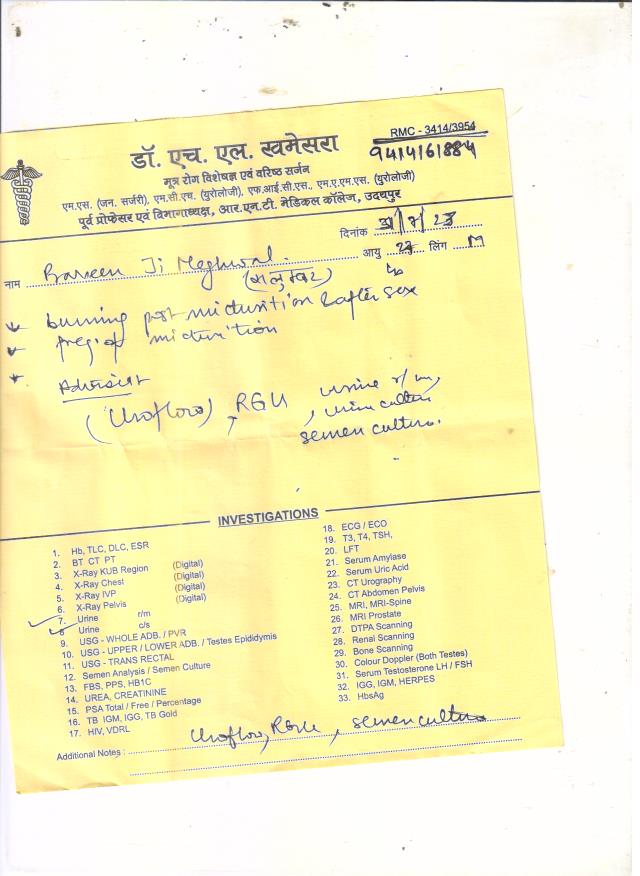 RMC - 3414/3954
9414161884
डॉ. एच. एल. खमेसरा
मूत्र रोग विशेषज्ञ एवं वरिष्ठ सर्जन
एम.एस. (जन. सर्जरी), एम.सी.एच. (युरोलोजी), एफ.आई.सी.एस., एम.ए.एम.एस. (युरोलोजी)
पूर्व प्रोफेसर एवं विभागाध्यक्ष, आर.एन.टी. मेडिकल कॉलेज, उदयपुर
दिनांक 31/7/23
नाम Praveen Ji Meghwal आयु लिंग M
(सलुम्बर)
burning post micturition & after sex
freq of micturition
Advised
(Uroflow), RGU, urine r/m,
urine culture
semen culture.
INVESTIGATIONS
1. Hb, TLC, DLC, ESR
2. BT CT PT
3. X-Ray KUB Region (Digital)
4. X-Ray Chest (Digital)
5. X-Ray IVP (Digital)
6. X-Ray Pelvis (Digital)
7. Urine r/m
8 Urine c/s
9. USG - WHOLE ADB. / PVR
10. USG - UPPER / LOWER ADB. / Testes Epididymis
11. USG - TRANS RECTAL
12. Semen Analysis / Semen Culture
13. FBS, PPS, HB1C
14. UREA, CREATININE
15. PSA Total / Free / Percentage
16. TB IGM, IGG, TB Gold
17. HIV, VDRL
18. ECG / ECO
19. T3, T4, TSH,
20. LFT
21. Serum Amylase
22. Serum Uric Acid
23. CT Urography
24. CT Abdomen Pelvis
25. MRI, MRI-Spine
26. MRI Prostate
27. DTPA Scanning
28. Renal Scanning
29. Bone Scanning
30. Colour Doppler (Both Testes)
31. Serum Testosterone LH / FSH
32. IGG, IGM, HERPES
33. HbsAg
Additional Notes : Uroflow, RGU, semen culture